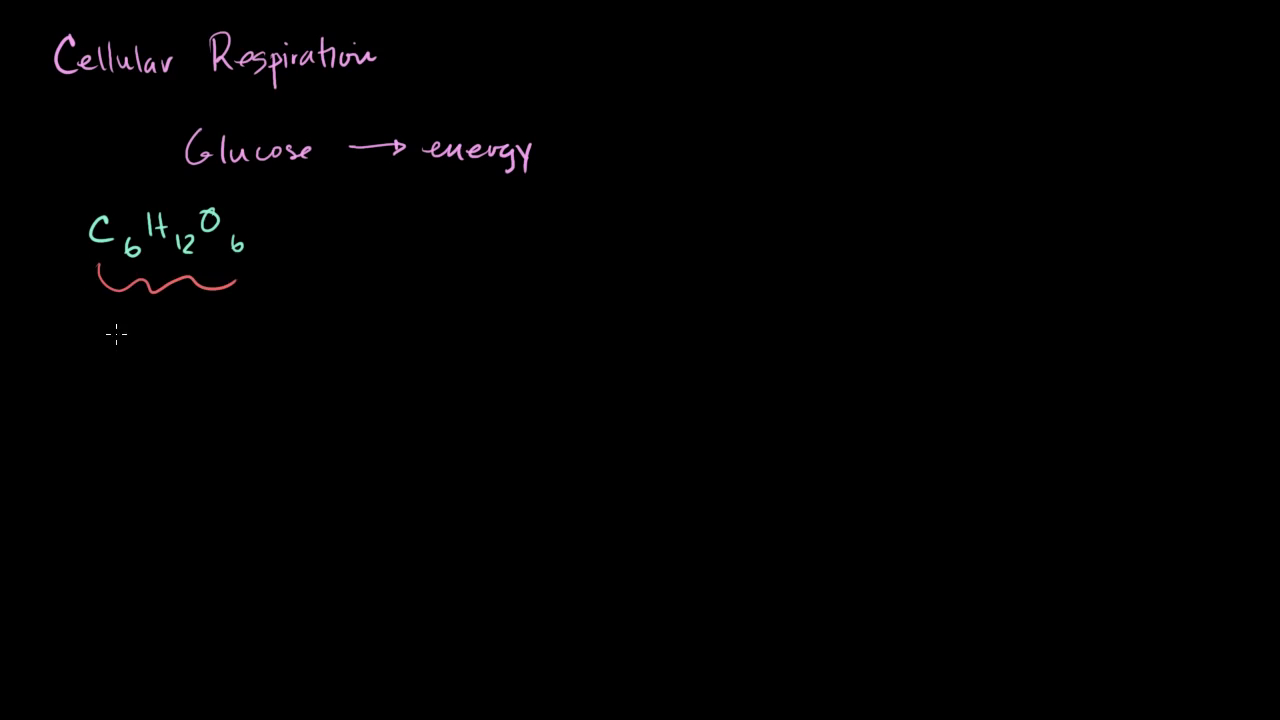 Cellular Respiration
Glucose → energy
C₆H₁₂O₆